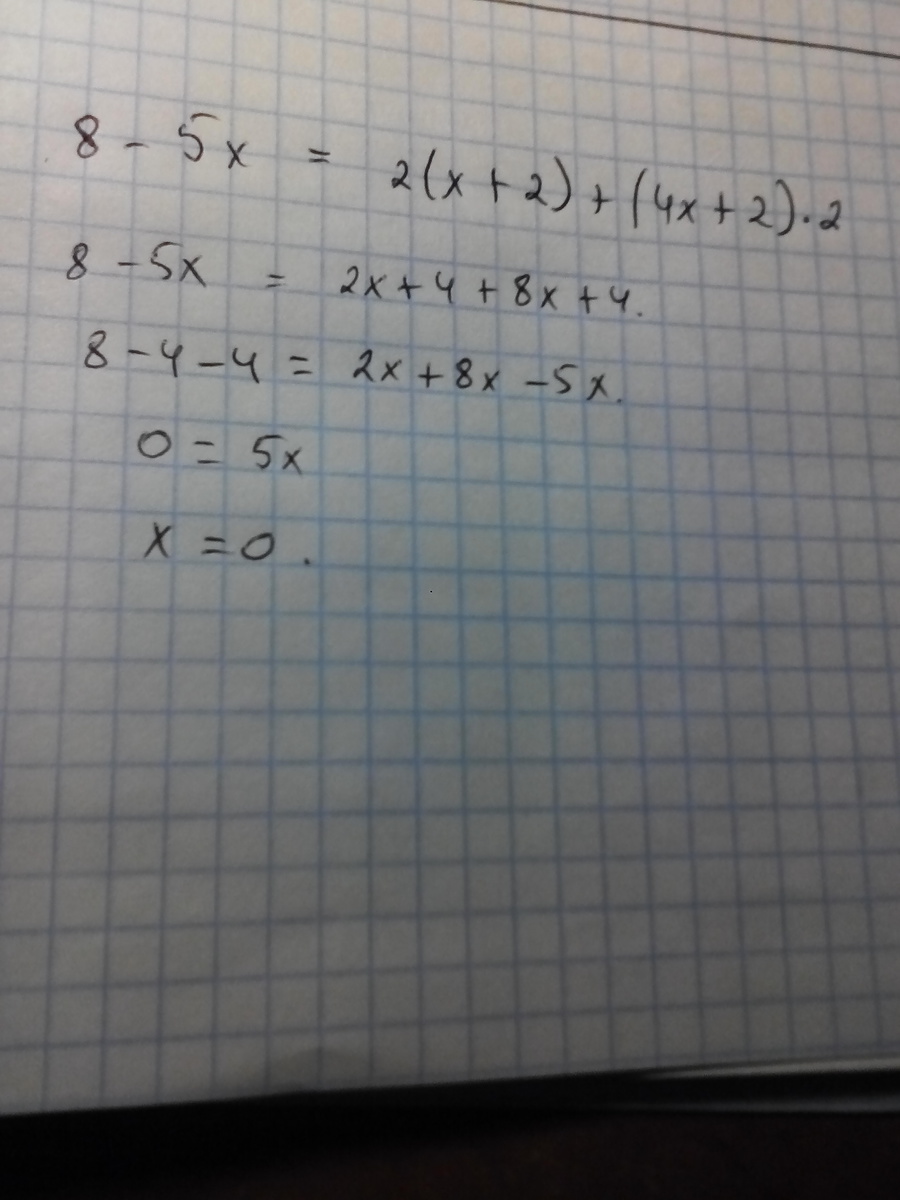 8 - 5x = 2(x + 2) + (4x + 2) · 2
8 - 5x = 2x + 4 + 8x + 4.
8 - 4 - 4 = 2x + 8x - 5x.
0 = 5x
x = 0.